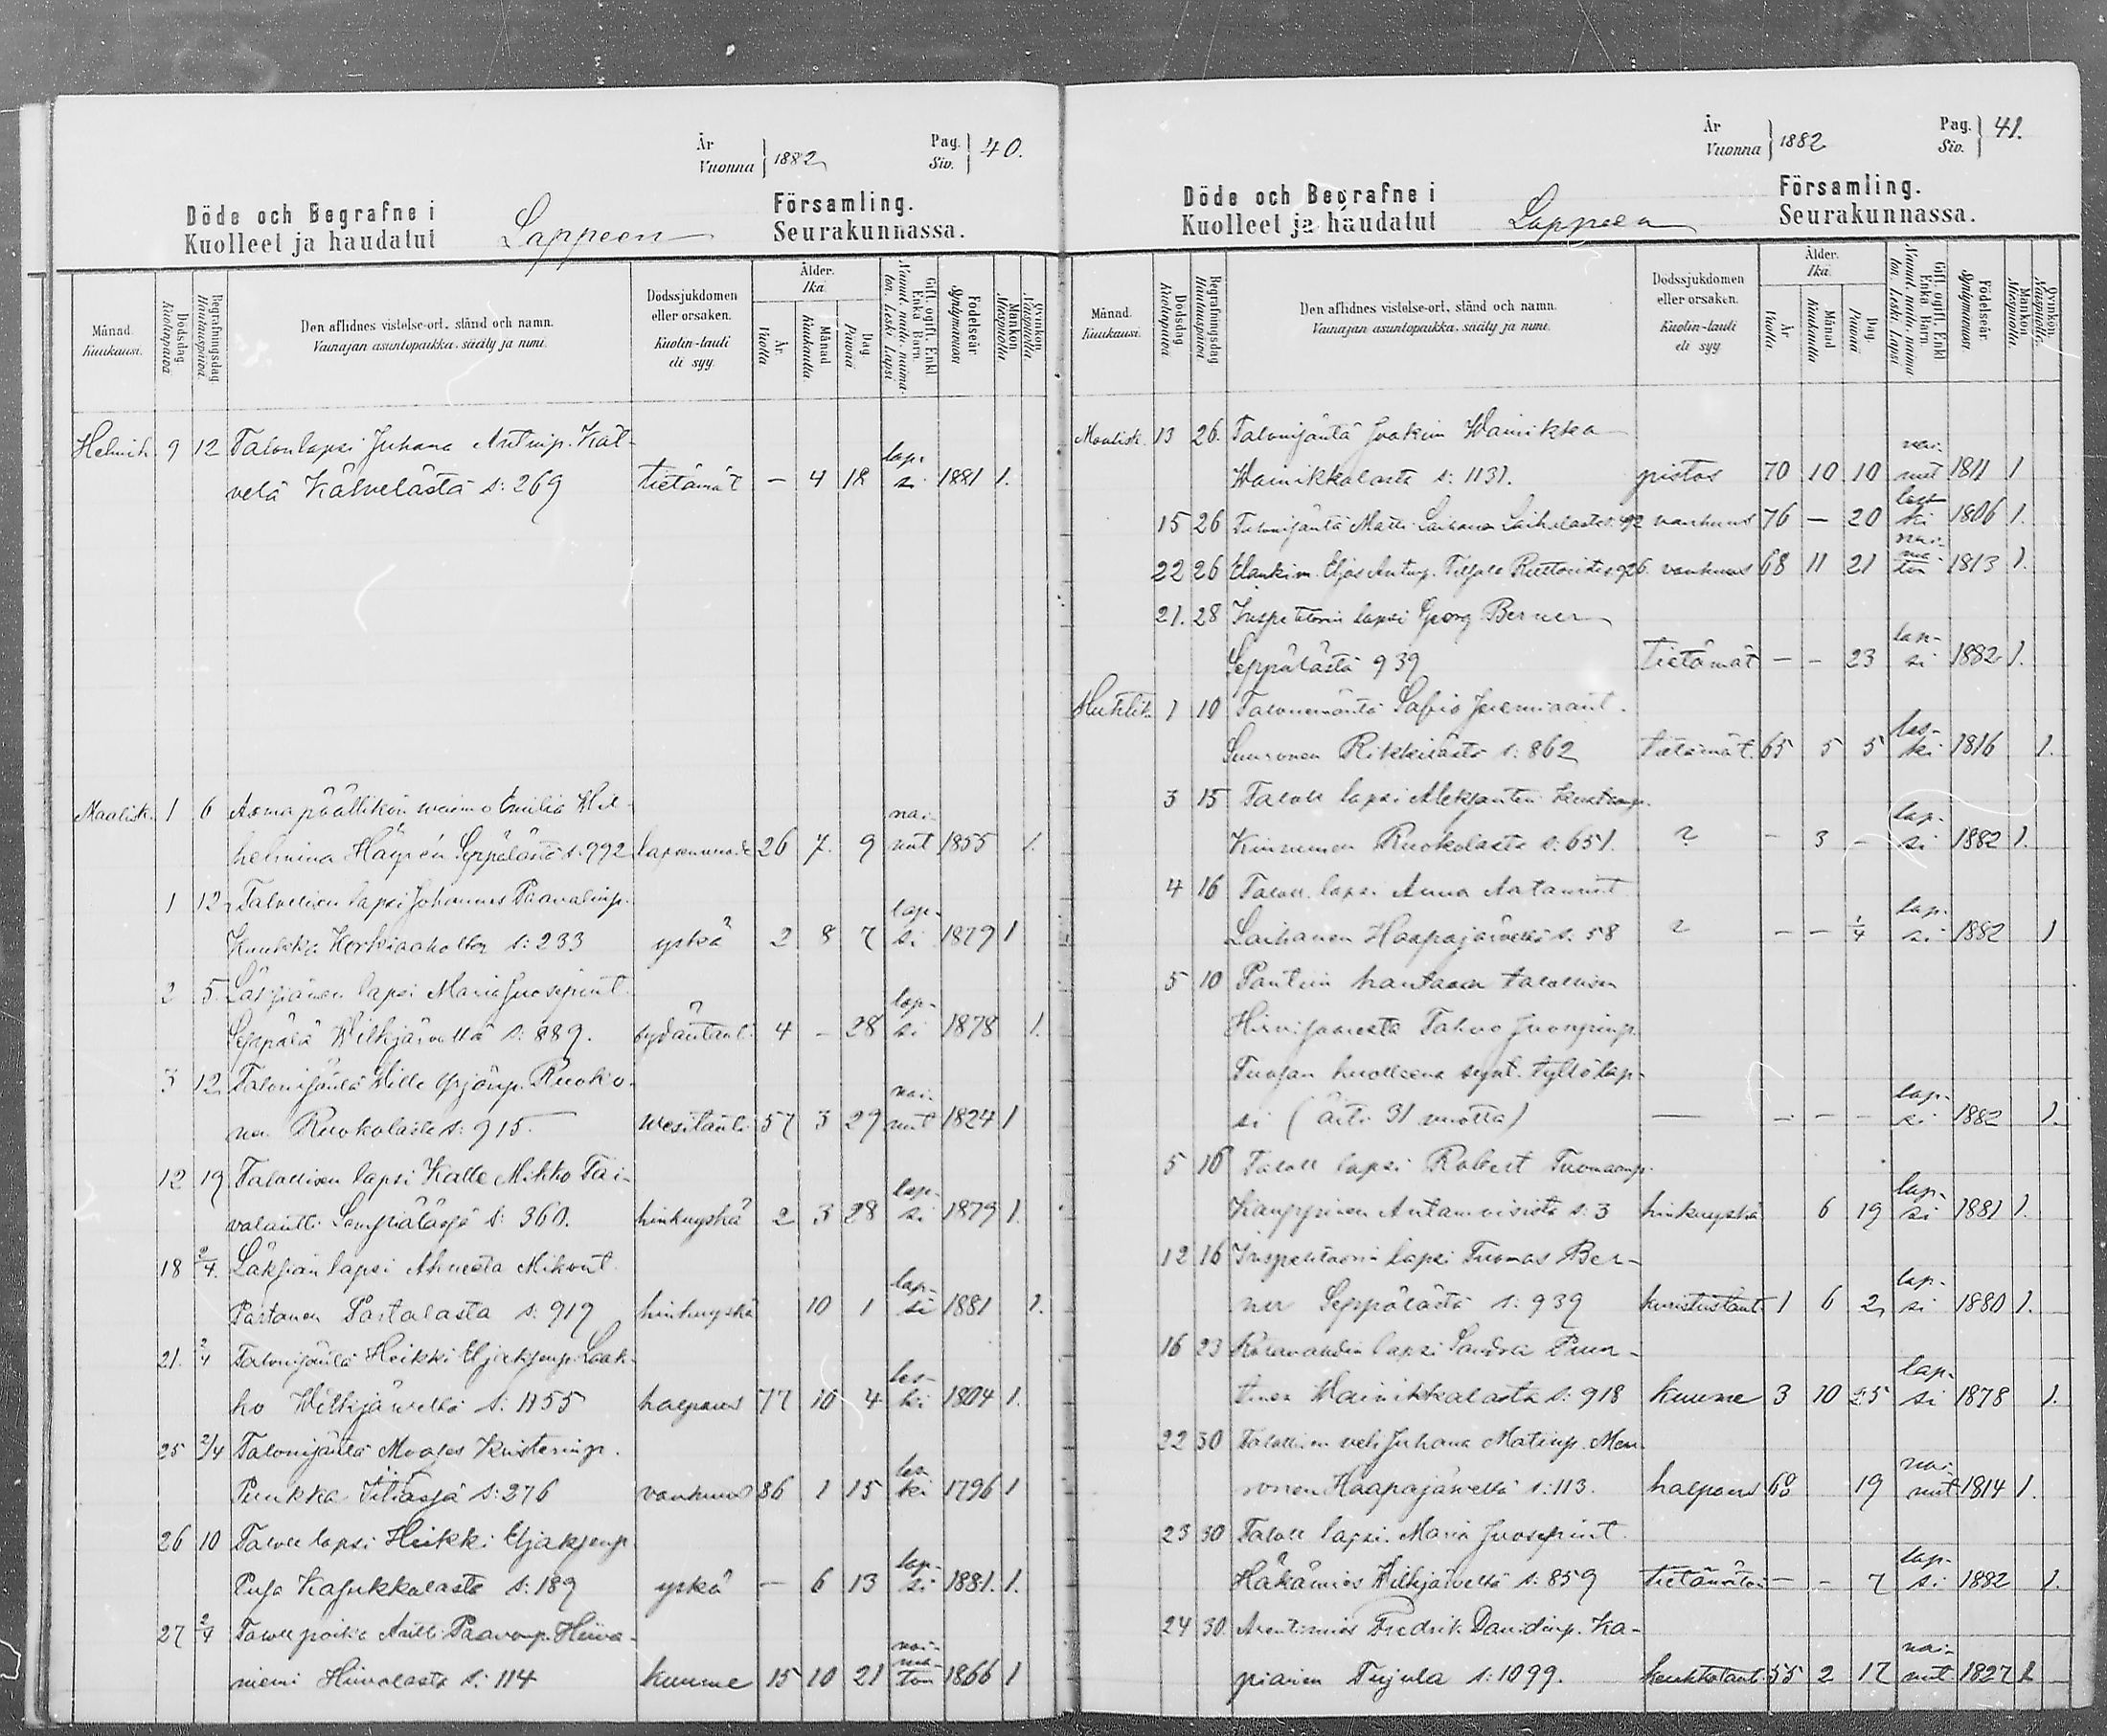 År
Vuonna } 1882
Pag.
Siv. } 40.
Döde och Begrafne i Församling.
Kuolleet ja haudatut Lappeen Seurakunnassa.
Månad. Kuukausi.
Dödsdag. Kuolinpäivä
Begrafningsdag. Hautauspäivä
Den aflidnes vistelse-ort, stånd och namn.
Vainajan asuntopaikka, sääty ja nimi.
Dödssjukdomen eller orsaken.
Kuolin-tauti eli syy.
Ålder. Ikä.
År. Vuotta
Månad. Kuukautta
Dag. Päivää
Gift, ogift, Enkl. Enka Barn.
Nainut, naima-ton, Leski, Lapsi
Födelseår. Syntymävuosi
Mankön. Miespuolta.
Qvinkön. Vaimopuolta.
Helmik. 9 12 Talonlapsi Juhana Antinp. Käl-
velä Kälvelästä s: 269 tietämät — 4 18 lapsi 1881 1.
Maalisk. 1 6 Asemapäällikön waimo Emilia Wil-
helmina Seppälästä s. 992 26 7 9 nainut 1855 1.
1 12 Talollisen lapsi Johannes Paavalinp.
Kuukka s: 233 yskä 2 8 7 lapsi 1879 1
2 5 lapsi Maria Juosepint.
Seppälä Wilkjärveltä s: 889. sydäntaut. 4 – 28 lapsi 1878 1.
3 12 Talonisäntä Wille Yrjönp. Ruoko-
nen Ruokolasta s: 915. wesitauti 57 3 29 nainut 1824 1
12 19 Talollisen lapsi Kalle Mikko Tai-
valantti s: 360. hinkuyskä 2 3 28 lapsi 1879 1.
18 2/4 lapsi Mikont.
Partanen Partalasta s: 919 hinkuyskä 10 1 lapsi 1881 1.
21. 2/4 Talonisäntä Heikki Laak-
ko Wilkjärveltä s: 1155 halpaus 77 10 4 leski 1804 1.
25 2/4 Talonisäntä Mooses Kristerinp.
Punkka s: 276 vanhuus 86 1 15 leski 1796 1
26 10 Taloll lapsi Heikki
Pusa Kasukkalasta s: 189 yskä — 6 13 lapsi 1881. 1.
27 2/4 Taloll poika Antti Paavonp. Hiiva-
niemi s: 114 kuume 15 10 21 naimaton 1866 1
År
Vuonna } 1882
Pag.
Siv. } 41.
Döde och Begrafne i Församling.
Kuolleet ja haudatut Lappeen Seurakunnassa.
Månad. Kuukausi.
Dödsdag. Kuolinpäivä
Begrafningsdag. Hautauspäivä
Den aflidnes vistelse-ort, stånd och namn.
Vainajan asuntopaikka, sääty ja nimi.
Dödssjukdomen eller orsaken.
Kuolin-tauti eli syy.
Ålder. Ikä.
År. Vuotta
Månad. Kuukautta
Dag. Päivää
Gift, ogift, Enkl. Enka Barn.
Nainut, naima-ton, Leski, Lapsi
Födelseår. Syntymävuosi.
Mankön. Miespuolta.
Qvinkön. Vaimopuolta.
Maalisk. 13 26. Talonisäntä Joakim Wainikka
Wainikkalasta s: 1131. pistos 70 10 10 nainut 1811 1
15 26 Talonisäntä Matti Laihanen Laihalasta s. 92 vanhuus 76 — 20 leski 1806 1.
22 26 Antinp. 926. vanhuus 68 11 21 naimaton 1813 1.
21. 28 Inspehtorin lapsi Georg Berner
Seppälästä 939 tietämät — – 23 lapsi 1882 1.
Huhtik. 1 10 Talonemäntä Safia Jeremiaant.
Suuronen Rikkilästä s: 862 tietämät. 65 5 5 leski 1816 1.
3 15 Taloll lapsi Aleksanteri
Kinnunen Ruokolasta s: 651. ? – 3 – lapsi 1882 1.
4 16 Taloll. lapsi Anna Aatamint
Laihanen Haapajärveltä s: 58 ? — — 1/4 lapsi 1882 1
5 10 Pantiin hautaan talollisen
Tahvo Juosepinp.
kuolleena synt. tyttölap-
si (äiti 31 vuotta) — — – – lapsi 1882 1.
5 16 Taloll lapsi Robert Tuomaanp.
Kauppinen s: 3 hinkuyskä 6 19 lapsi 1881 1.
12 16 Inspehtorin lapsi Tuomas Ber-
ner Seppälästä s: 939 kuristustaut 1 6 2 lapsi 1880 1.
16 23 lapsi Sandra
Wainikkalasta s: 918 kuume 3 10 25 lapsi 1878 1.
22 30 Talollisen veli Juhana Matinp.
Haapajärveltä s: 113. halpaus 68 19 nainut 1814 1.
23 30 Taloll lapsi. Maria Juosepint.
Häkämies Wilkjärveltä s: 859 — – 7 lapsi 1882 1.
24 30. Fredrik Davidinp. Ka-
piainen s: 1099. keuhkotaut 55 2 17 nainut 1827 1